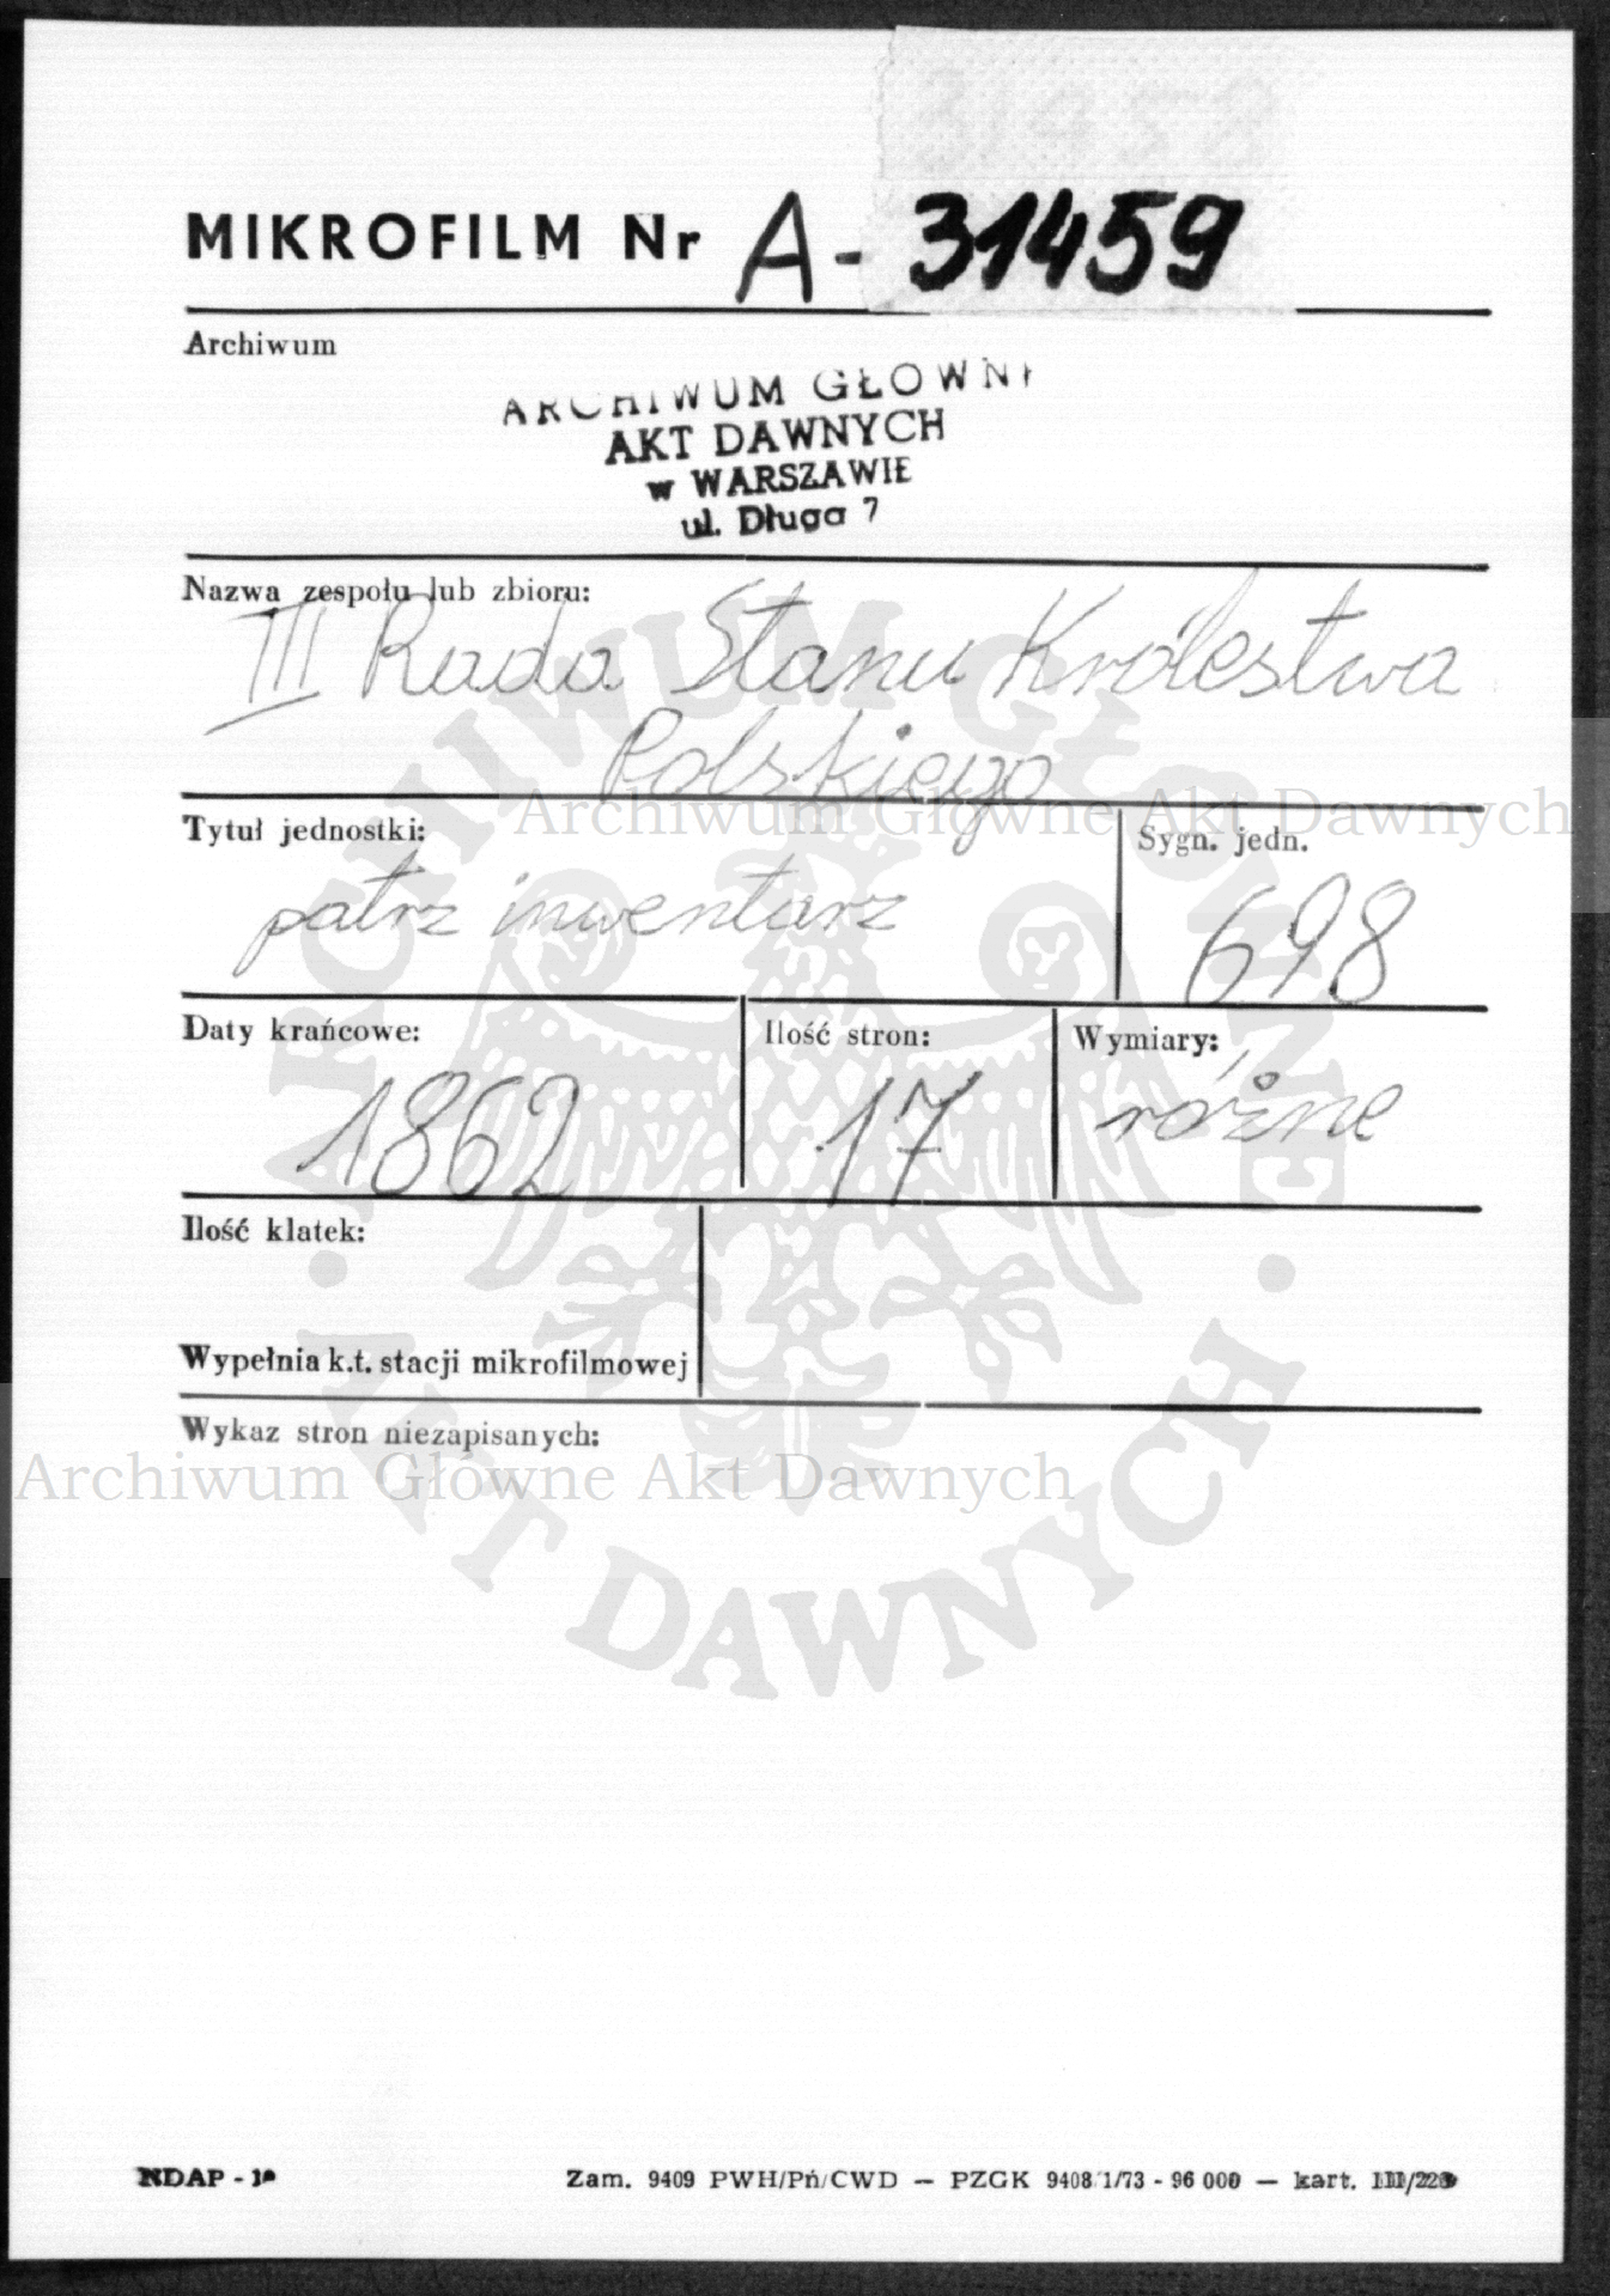 MIKROFILM Nr A - 31459
Archiwum
ARCHIWUM GŁOWN
AKT DAWNYCH
w WARSZAWIE
ul. Długa 7
Nazwa zespołu lub zbioru:
III Rada Stanu Królestwa
Polskiego
Archiwum Główne Akt Dawnych
Tytuł jednostki:
patrz inwentarz
Sygn. jedn.
698
Daty krańcowe:
1862
Ilość stron:
17
Wymiary:
różne
Ilość klatek:
Wypełnia k.t. stacji mikrofilmowej
Wykaz stron niezapisanych:
Archiwum Główne Akt Dawnych
ARCHIWUM GŁÓWNE
AKT DAWNYCH
NDAP -
Zam. 9409 PWH/Pń/CWD — PZGK 9408/1/73 - 96 000 — kart.